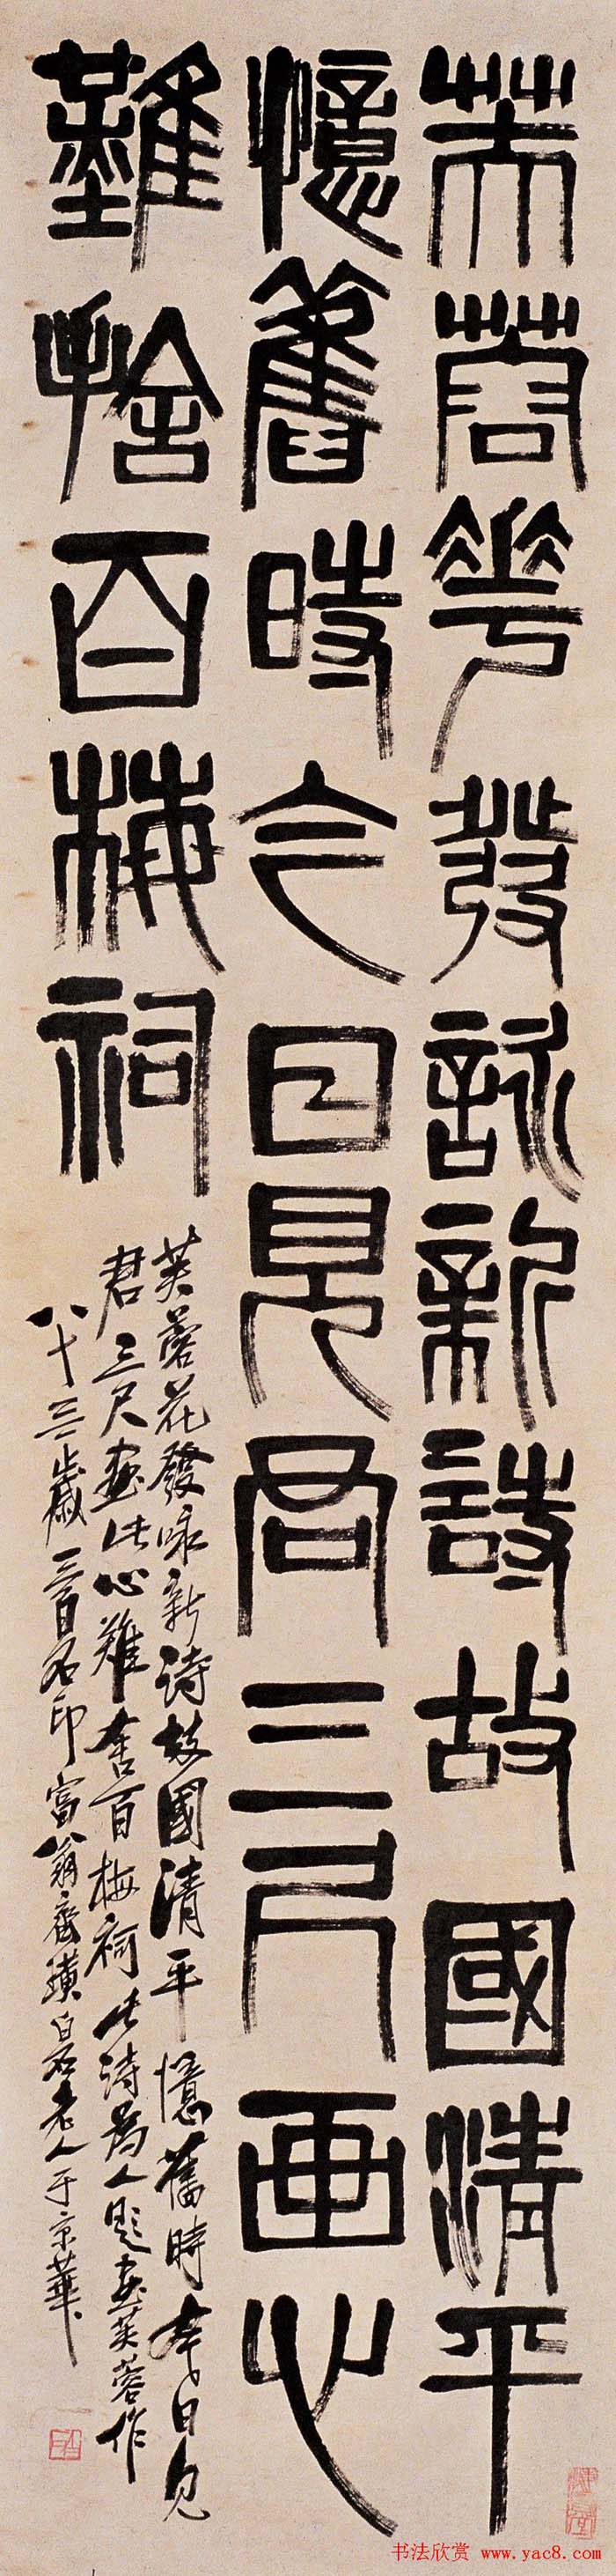 芙蓉花發詠新詩故國清平
憶舊時今日見君三尺画心
難捨百梅祠
芙蓉花發咏新詩故國清平憶舊時今日見
君三尺畫此心難舍百梅祠此詩為人題畫芙蓉作
八十三歲三百石印富翁齊璜白石老人于京華
书法欣赏 www.yac8.com